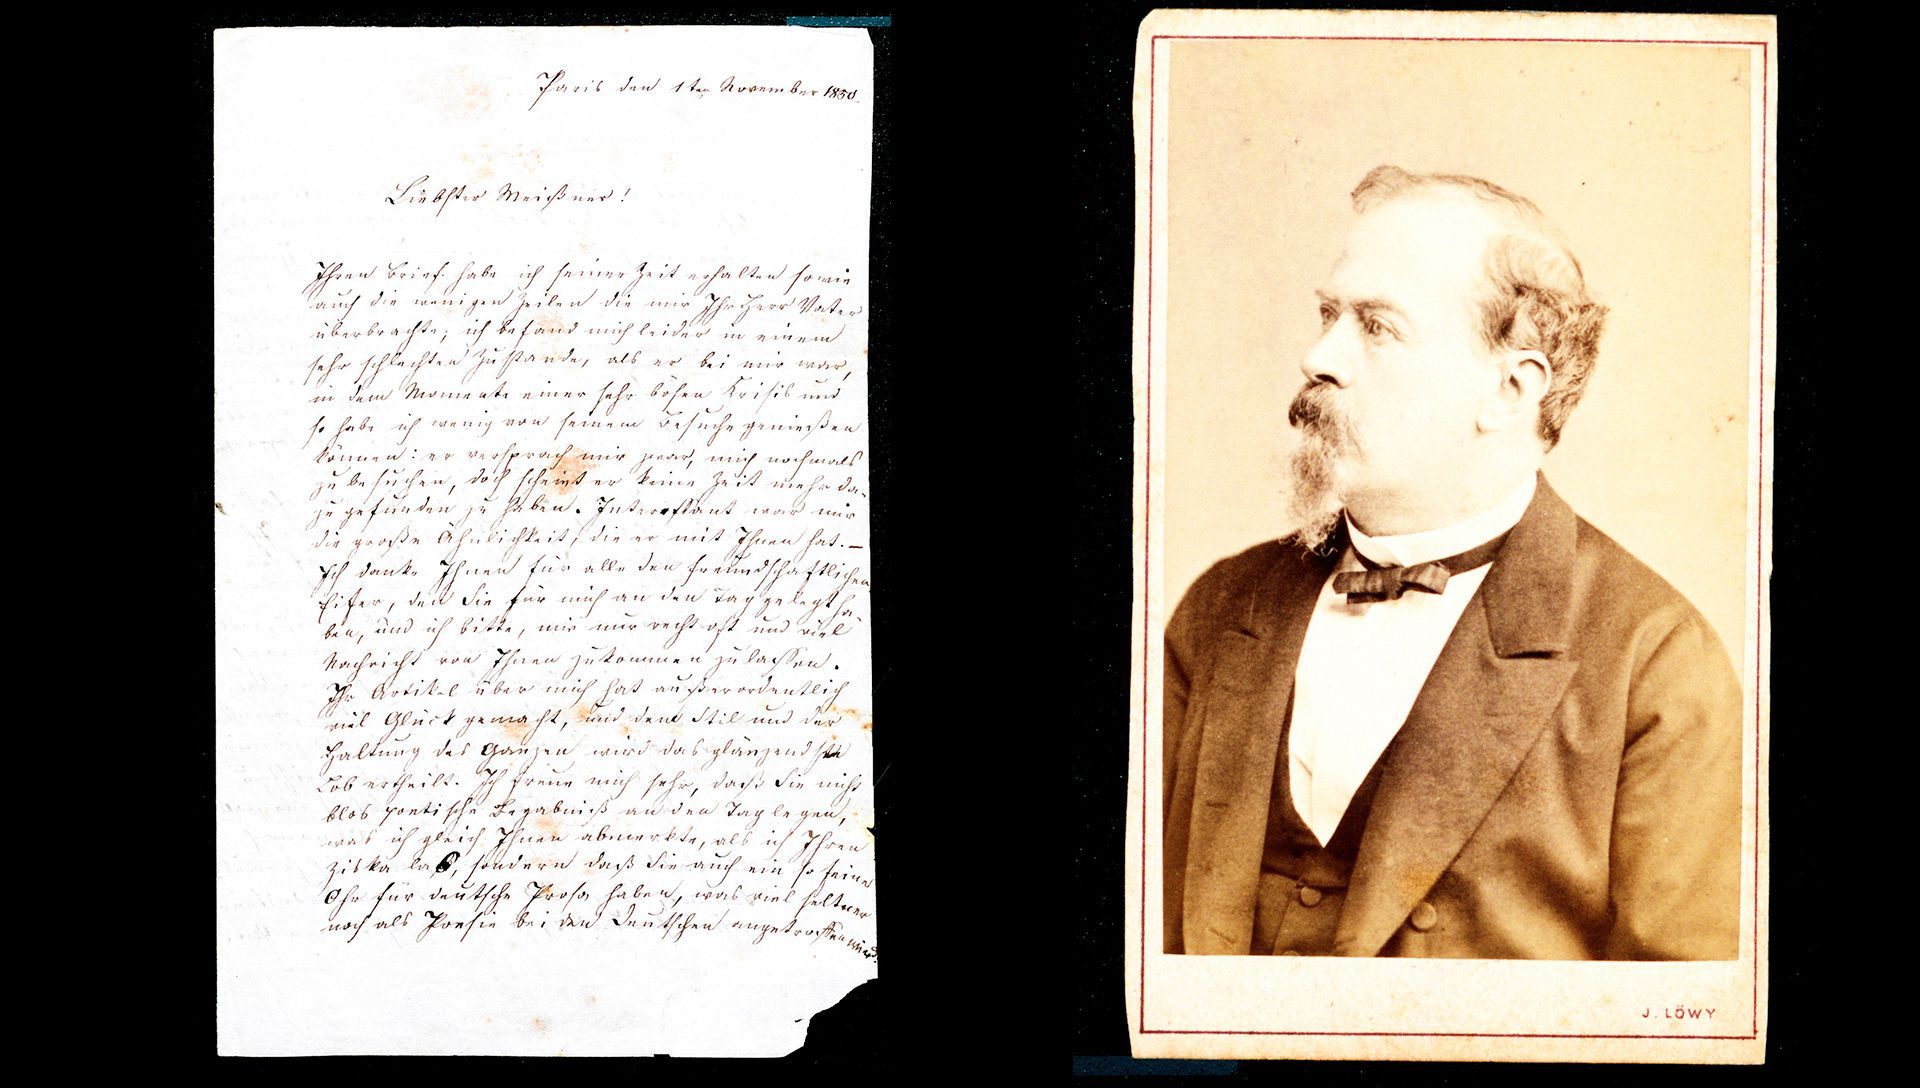 Paris den 1ten November 1850.
Liebster Meißner!
Ihren Brief habe ich seiner Zeit erhalten sowie
auch die wenigen Zeilen die mir Ihr Herr Vater
überbrachte; ich befand mich leider in einem
sehr schlechten Zustande, als er bei mir war,
in dem Momente einer sehr bösen Crisis und
so habe ich wenig von seinem Besuche genießen
können: er versprach mir zwar, mich nochmals
zu besuchen, doch scheint er keine Zeit mehr da-
zu gefunden zu haben. Interessant war mir
die große Ähnlichkeit, die er mit Ihnen hat. —
Ich danke Ihnen für alle den freundschaftlichen
Eifer, den Sie für mich an den Tag gelegt ha-
ben, und ich bitte, mir nur recht oft und viel
Nachricht von Ihnen zukommen zu lassen.
Ihr Artikel über mich hat außerordentlich
viel Glück gemacht, und dem Stil und der
Haltung des Ganzen wird das glänzendste
Lob ertheilt. Ich freue mich sehr, daß Sie nicht
blos poetische Begabniß an den Tag legen,
was ich gleich Ihnen abmerkte, als ich Ihren
Ziska las, sondern daß Sie auch ein so feines
Ohr für deutsche Prosa haben, was viel seltner
noch als Poesie bei den Deutschen angetroffen wird.
J. LÖWY